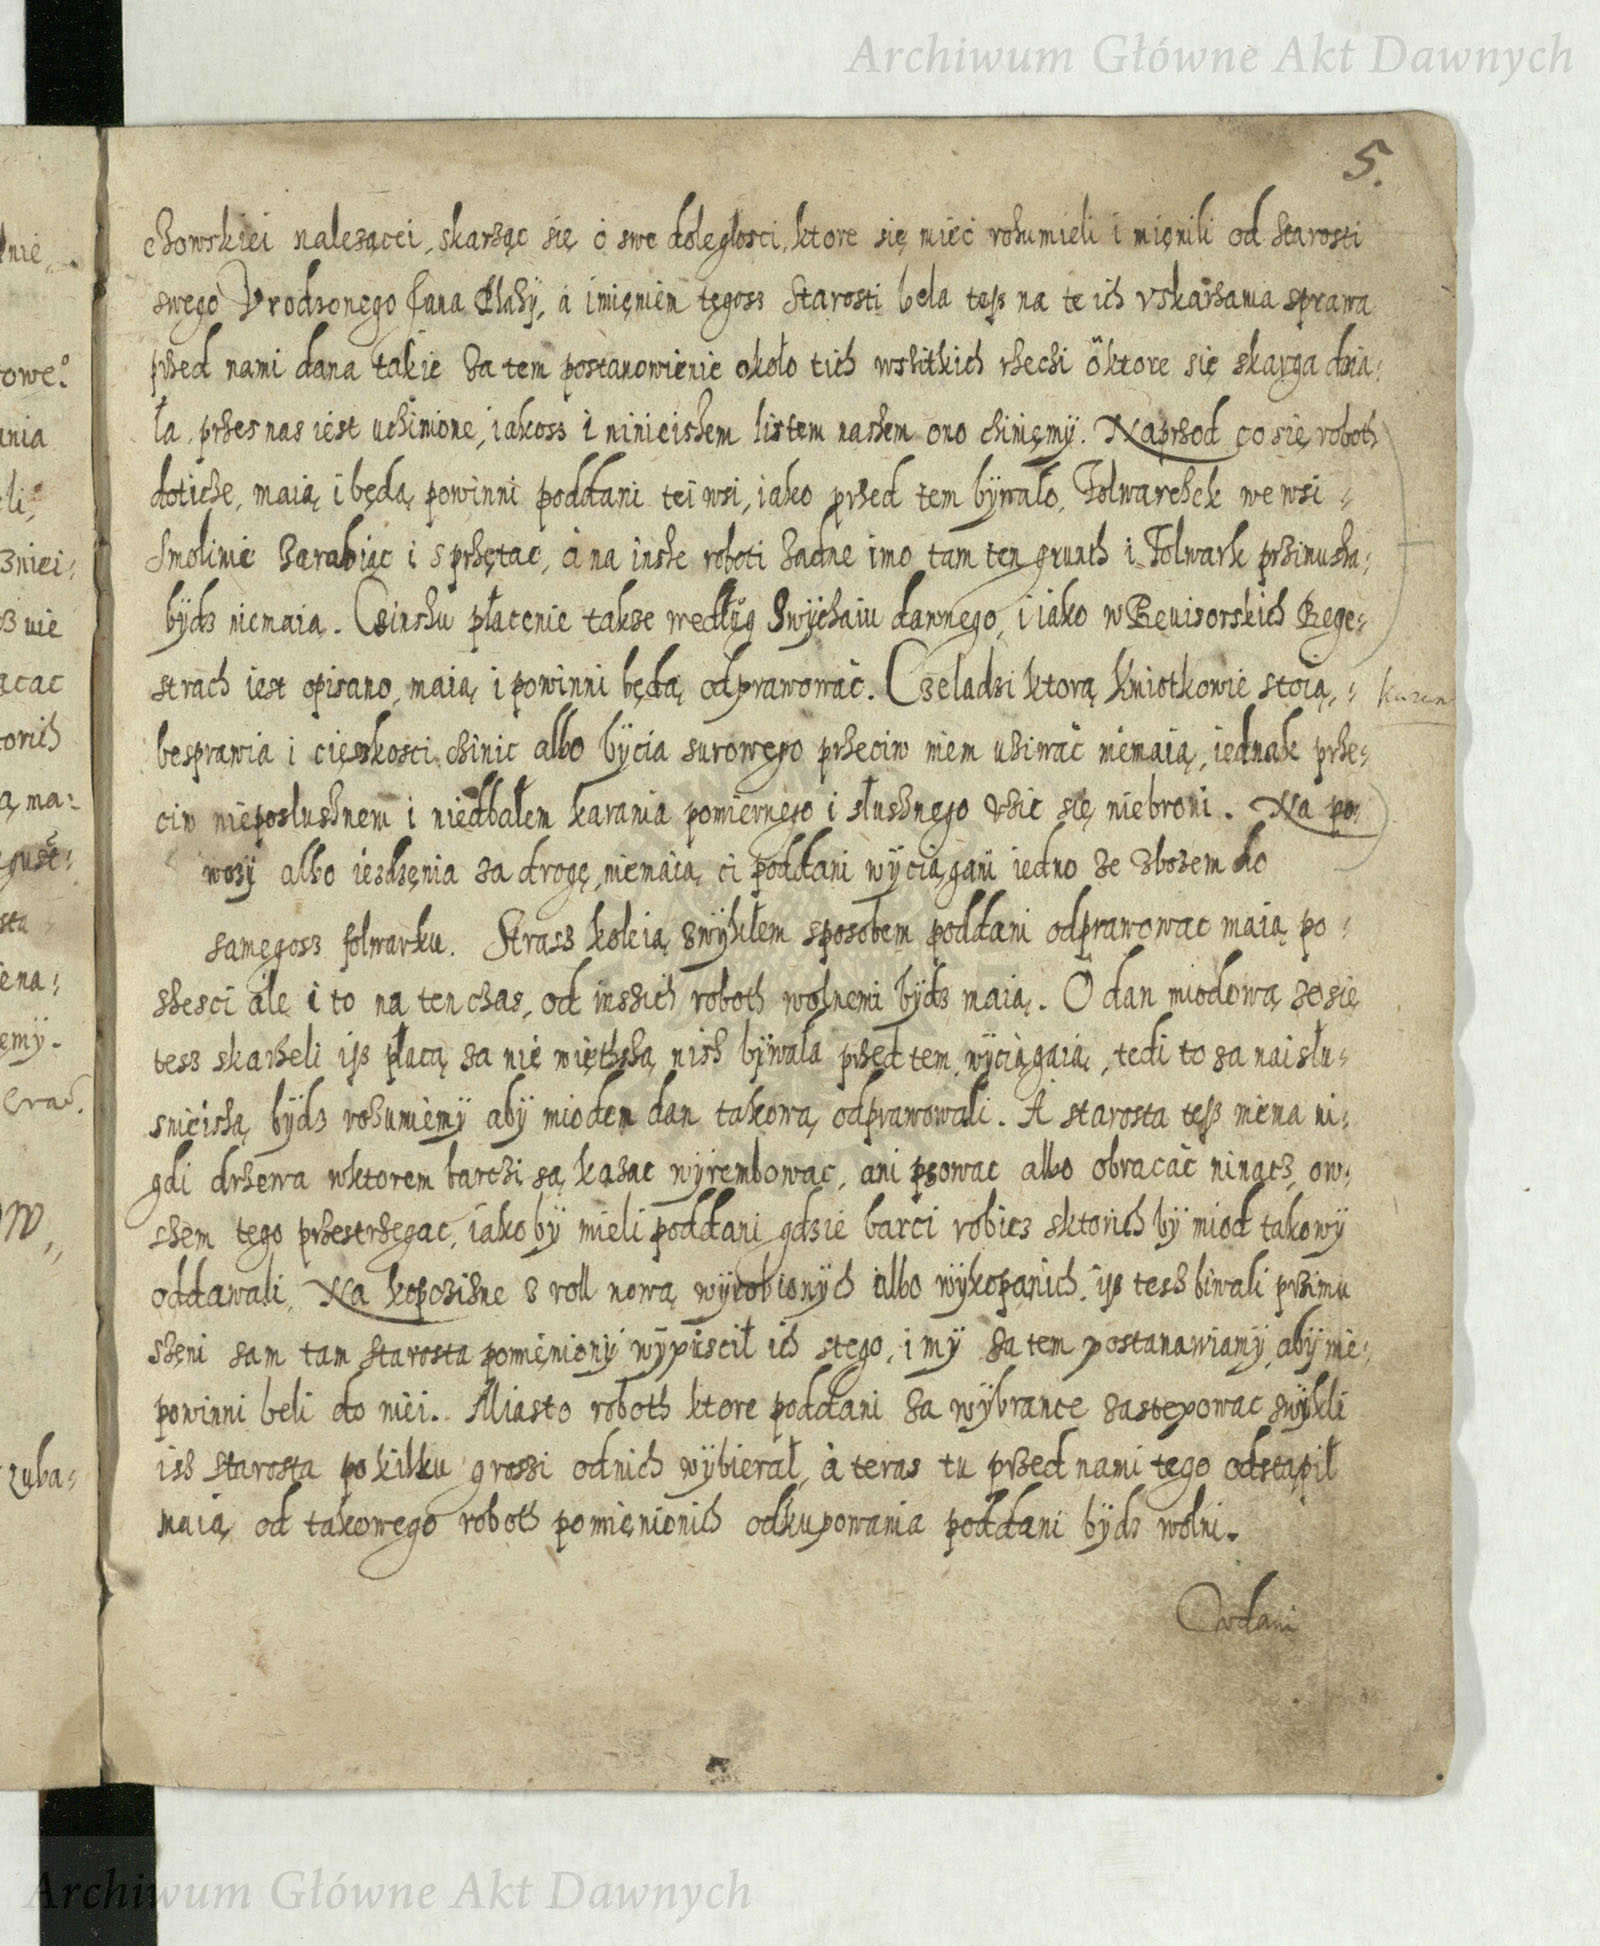 Archiwum Główne Akt Dawnych
5.
chowskiei nalezącei, skarząc się o swe doległosci, ktore się miec rozumieli i mięnili od Starosti
swego Vrodzonego Jana a imięniem tęgosz Starosti bela tesz na te ich vskarzania sprawa
przed nami dana takie za tem postanowienie około tich wszitkich rzechi o ktore się skarga dzia:
ła, przes nas iest uchinione, iakosz i ninieiszem listem naszem ono chinięmÿ. Naprzod co się roboth
doticze, maią i będą powinni poddani tei wsi, iako przed tem bÿwało, Folwarchek we wsi :
Smolinie zarabiac i sprzętac, a na insze roboti zadne imo tam ten grunth i Folwark przinusza:
bÿdz niemaia. Czinszu płacenie takze według Swÿchaiu dawnego, i iako w Reuisorskich Rege:
strach iest opisano, maią i powinni będą odprawowac. Czeladzi ktorą kmiotkowie stoią, :
besprawia i cięszkosci chinic albo bÿcia surowego przeciw niem uziwac niemaią, iednak prze:
ciw nieposlusznem i niedbałem karania pomiernego i słusznego vzic się niebroni. Na po:
wozÿ albo iezdzęnia za drogę, niemaią ci poddani wÿciągani iedno ze zbozem do
samegosz folwarku. Strasz koleią zwÿkłem sposobem poddani odprawowac maią po:
szesci ale i to na ten chas, od inszich roboth wolnemi bÿdz maią. O dan miodową ze się
tesz skarzeli isz płacą za nię więtszą nisz bÿwała przed tem, wÿciągaią, tedi to za naisłu:
snieiszą bÿdz rozumiemÿ abÿ miodem dan takową odprawowali. A starosta tesz niema ni:
gdi drzewa wktorem barchi są kazac wÿrembowac, ani psowac albo obracac ninacz, ow:
szem tego przestrzegac, iakobÿ mieli poddani gdzie barci robicz sktorich bÿ miod takowÿ
oddawali. Na kopczizne z roll nową wÿrobionÿch albo wÿkopanich, isz tesz biwali przimu
szęni sam tam starosta pomięnionÿ wÿpuscił ich stego, i mÿ za tem postanawiamÿ, abÿ nie:
powinni beli do niei. Miasto roboth ktore poddani za wÿbrance zastepowac zwÿkli
isz starosta po kilku groszi odnich wÿbierał, a teras tu przed nami tego odstąpił
maią od takowego roboth pomięnionich odkupowania poddani bÿdz wolni.
Archiwum Główne Akt Dawnych